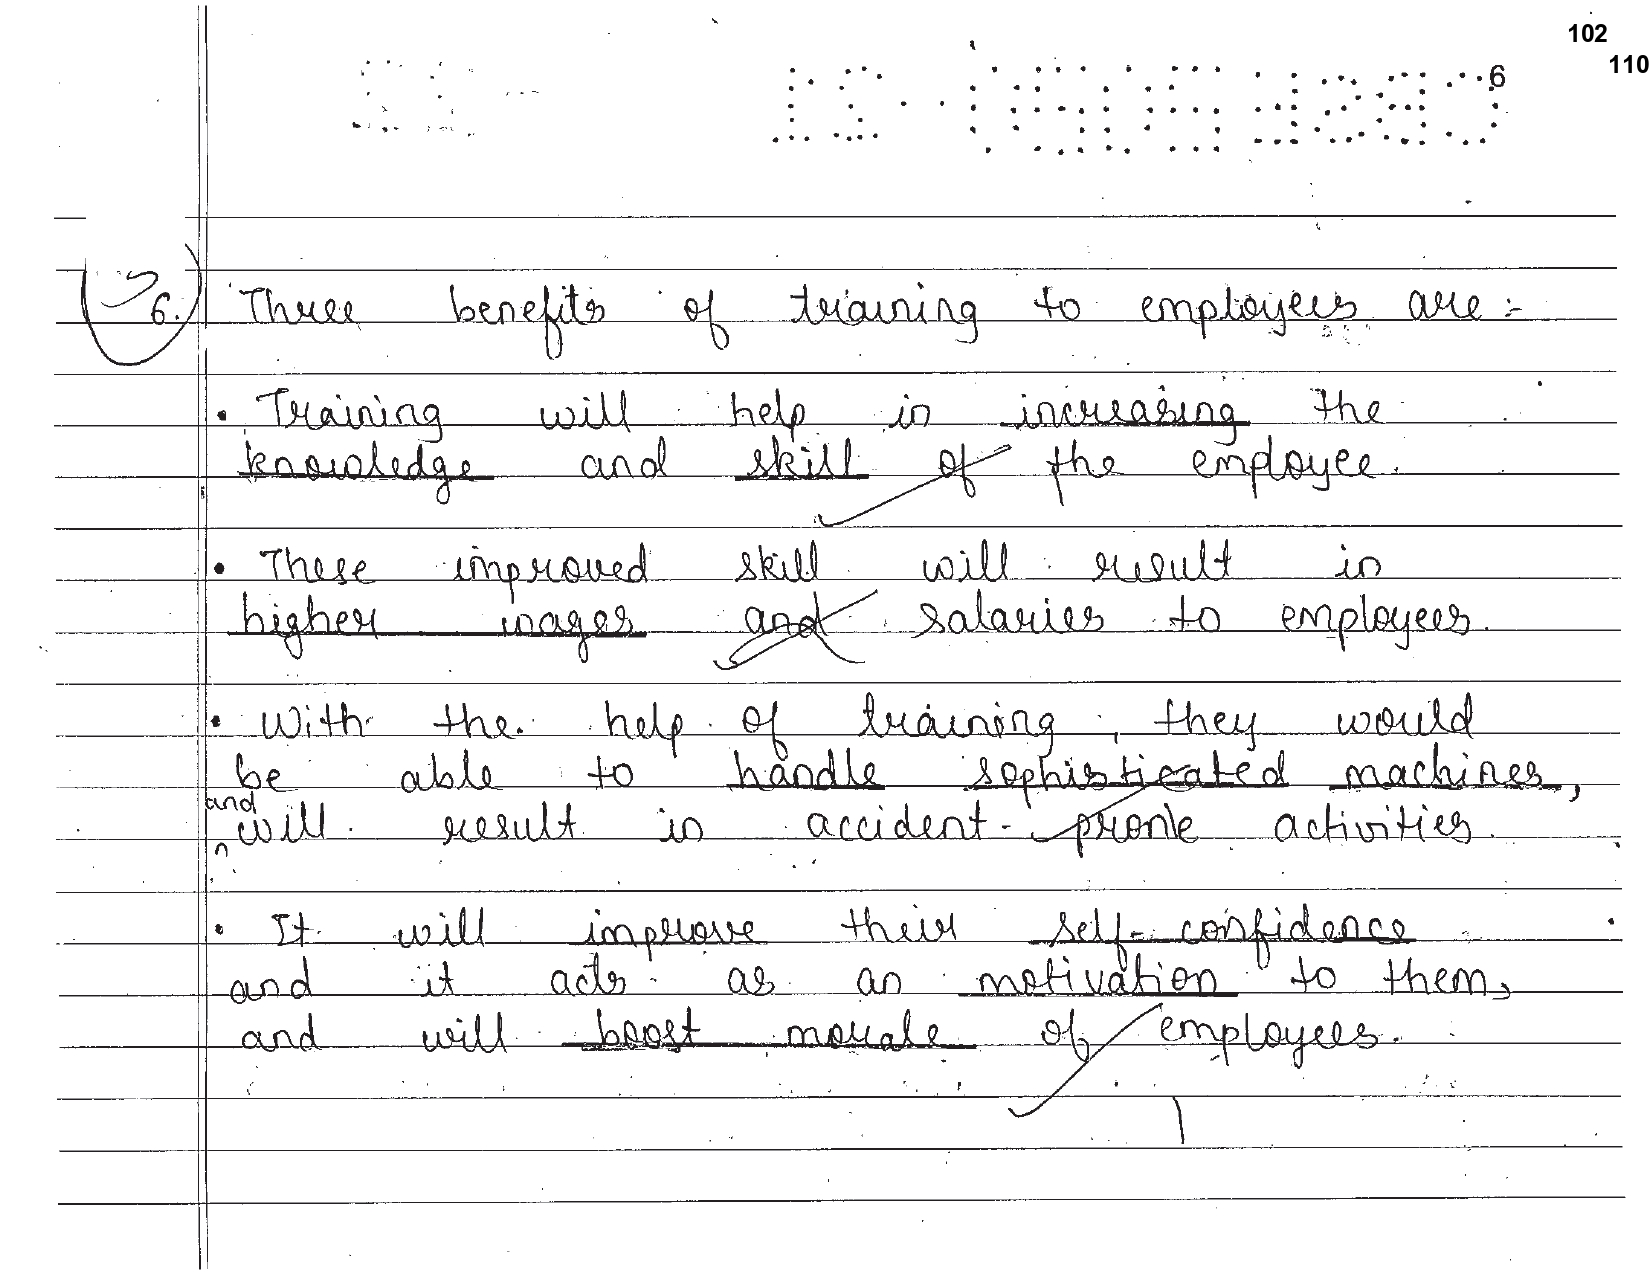 102
110
6
6. Three benefits of training to employees are :-
• Training will help in increasing the
knowledge and skill of the employee.
• These improved skill will result in
higher wages and salaries to employees.
• With the help of training, they would
be able to handle sophisticated machines,
and will result in accident-prone activities.
• It will improve their self-confidence
and it acts as an motivation to them,
and will boost morale of employees.